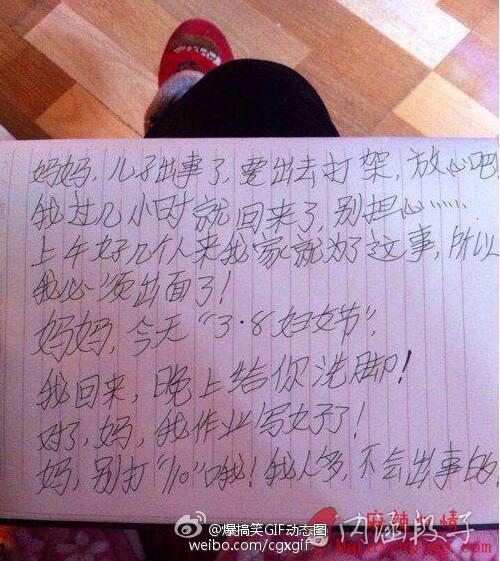 妈妈,儿子出事了,要出去打架,放心吧
我过几小时就回来了,别担心……
上午好几个人来我家就为了这事,所以
我必须出面了!
妈妈,今天“3·8妇女节”,
我回来,晚上给你洗脚!
对了,妈,我作业写好了!
妈,别打“110”哦!我人多,不会出事的!
@爆搞笑GIF动态图
weibo.com/cgxgif
麻辣心情
内涵段子